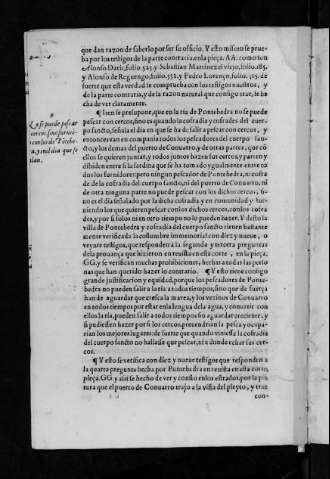 que dan razon de saberlo por ser su officio. Y esto mismo se prue-
ba por los testigos de la parte contraria en la pieça. AA. como son
Alonso Daris, folio. 523. y Sebastian Martinez el viejo, folio. 185.
y Alonso de Reguengo, folio. 552. y Pedro Lorenço, folio. de
fuerte que esta verdad se comprueba con los testigos nuestros, y
de la parte contraria, y de la razon natural que consigo trae, se ha
cha de ver claramente.
¶ Item se presupone, que en la ria de Pontebedra no se puede
pescar con cercos, sino es quando la cofradia y cofrades del cuer-
po sancto, señala el dia en que se ha de salir a pescar con cercos, y
entonces van en compañia todos los pescadores del cuerpo san-
cto, y los demas del puerto de Conuarro y de otras partes, que co
ellos se quieren juntar, y todos juntos hazen sus cercos, y parten y
dibiden entre si la sardina que se ha tomado ygualmente entre to
dos los formideros: pero ningun pescador de Pontebedra, ni cofra
de de la cofradia del cuerpo sancto, ni del puerto de Conuarro, ni
de otra ninguna parte no puede pescar con los dichos cercos, si
no es el dia señalado por la dicha cofradia, y en comunidad y her-
los que quieren pescar con los dichos cercos, con los cofra
des, y por si solos ni en otro tiempo no lo pueden hazer. Y desto la
villa de Pontebedra y cofradia del cuerpo sancto tienen bastante
mente verificada la costumbre immemorial con diez y nueue, o
veynte testigos, que responden a la segunda y quarta preguntas
de la prouança que hizieron en reuista en esta corte, en la pieça.
GG. y se verifican muchas prohibiciones, hechas a todas las perso
nas que han querido hazer lo contrario. ¶ Y esto tiene consigo
grande justificacion y equidad, porque los pescadores de Ponte-
bedra no pueden salir a la ria a todos tiempos, sino que de fuerça
han de aguardar que crezca la marea, y los vezinos de Conuarro
en todos tiempos por estar en la lengua del agua, y contenir con
ellos la ria, pueden salir a todos tiempos sin aguardar creciente, y
si pudiessen hazer por si los cercos prenderian la pesca y ocupa-
rian los mejores lugares de suerte que quando viniesse la cofradia
del cuerpo sancto no hallasse que pescar, ni a donde echar sus cer-
cos.
¶ Y esto se verifica con diez y nueue testigos que responden a
la quarta pregunta hecha por Pontebedra en reuista en esta corte,
pieça. GG. y assi se hecho de ver y consto en los estrados por la pin
tura que el puerto de Conuarro traxo a la vista del pleyto, y trae
con-